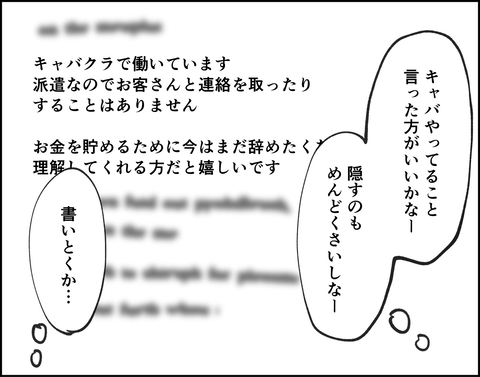 キャバやってること
言った方がいいかなー
隠すのも
めんどくさいしなー
キャバクラで働いています
派遣なのでお客さんと連絡を取ったり
することはありません
お金を貯めるために今はまだ辞めたく
理解してくれる方だと嬉しいです
書いとくか…